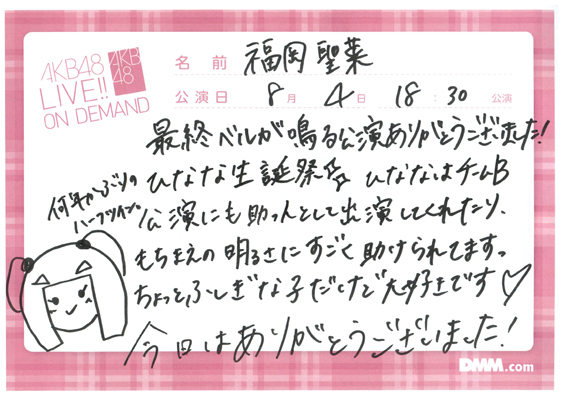 AKB48
LIVE!!
ON DEMAND
AKB
48
名前 福岡聖菜
公演日 8月 4日 18:30 公演
最終ベルが鳴る公演ありがとうございました!
ひなな生誕祭 ひななはチームB
公演にも助っ人として出演してくれたり、
もちまえの明るさにすごく助けられてます。
ちょっとふしぎな子だけど大好きです♡
今日はありがとうございました!
何年かぶりの
ハーフツイン。
DMM.com